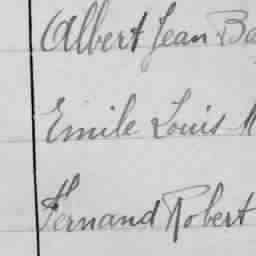 Albert Jean
Emile Louis
Fernand Robert